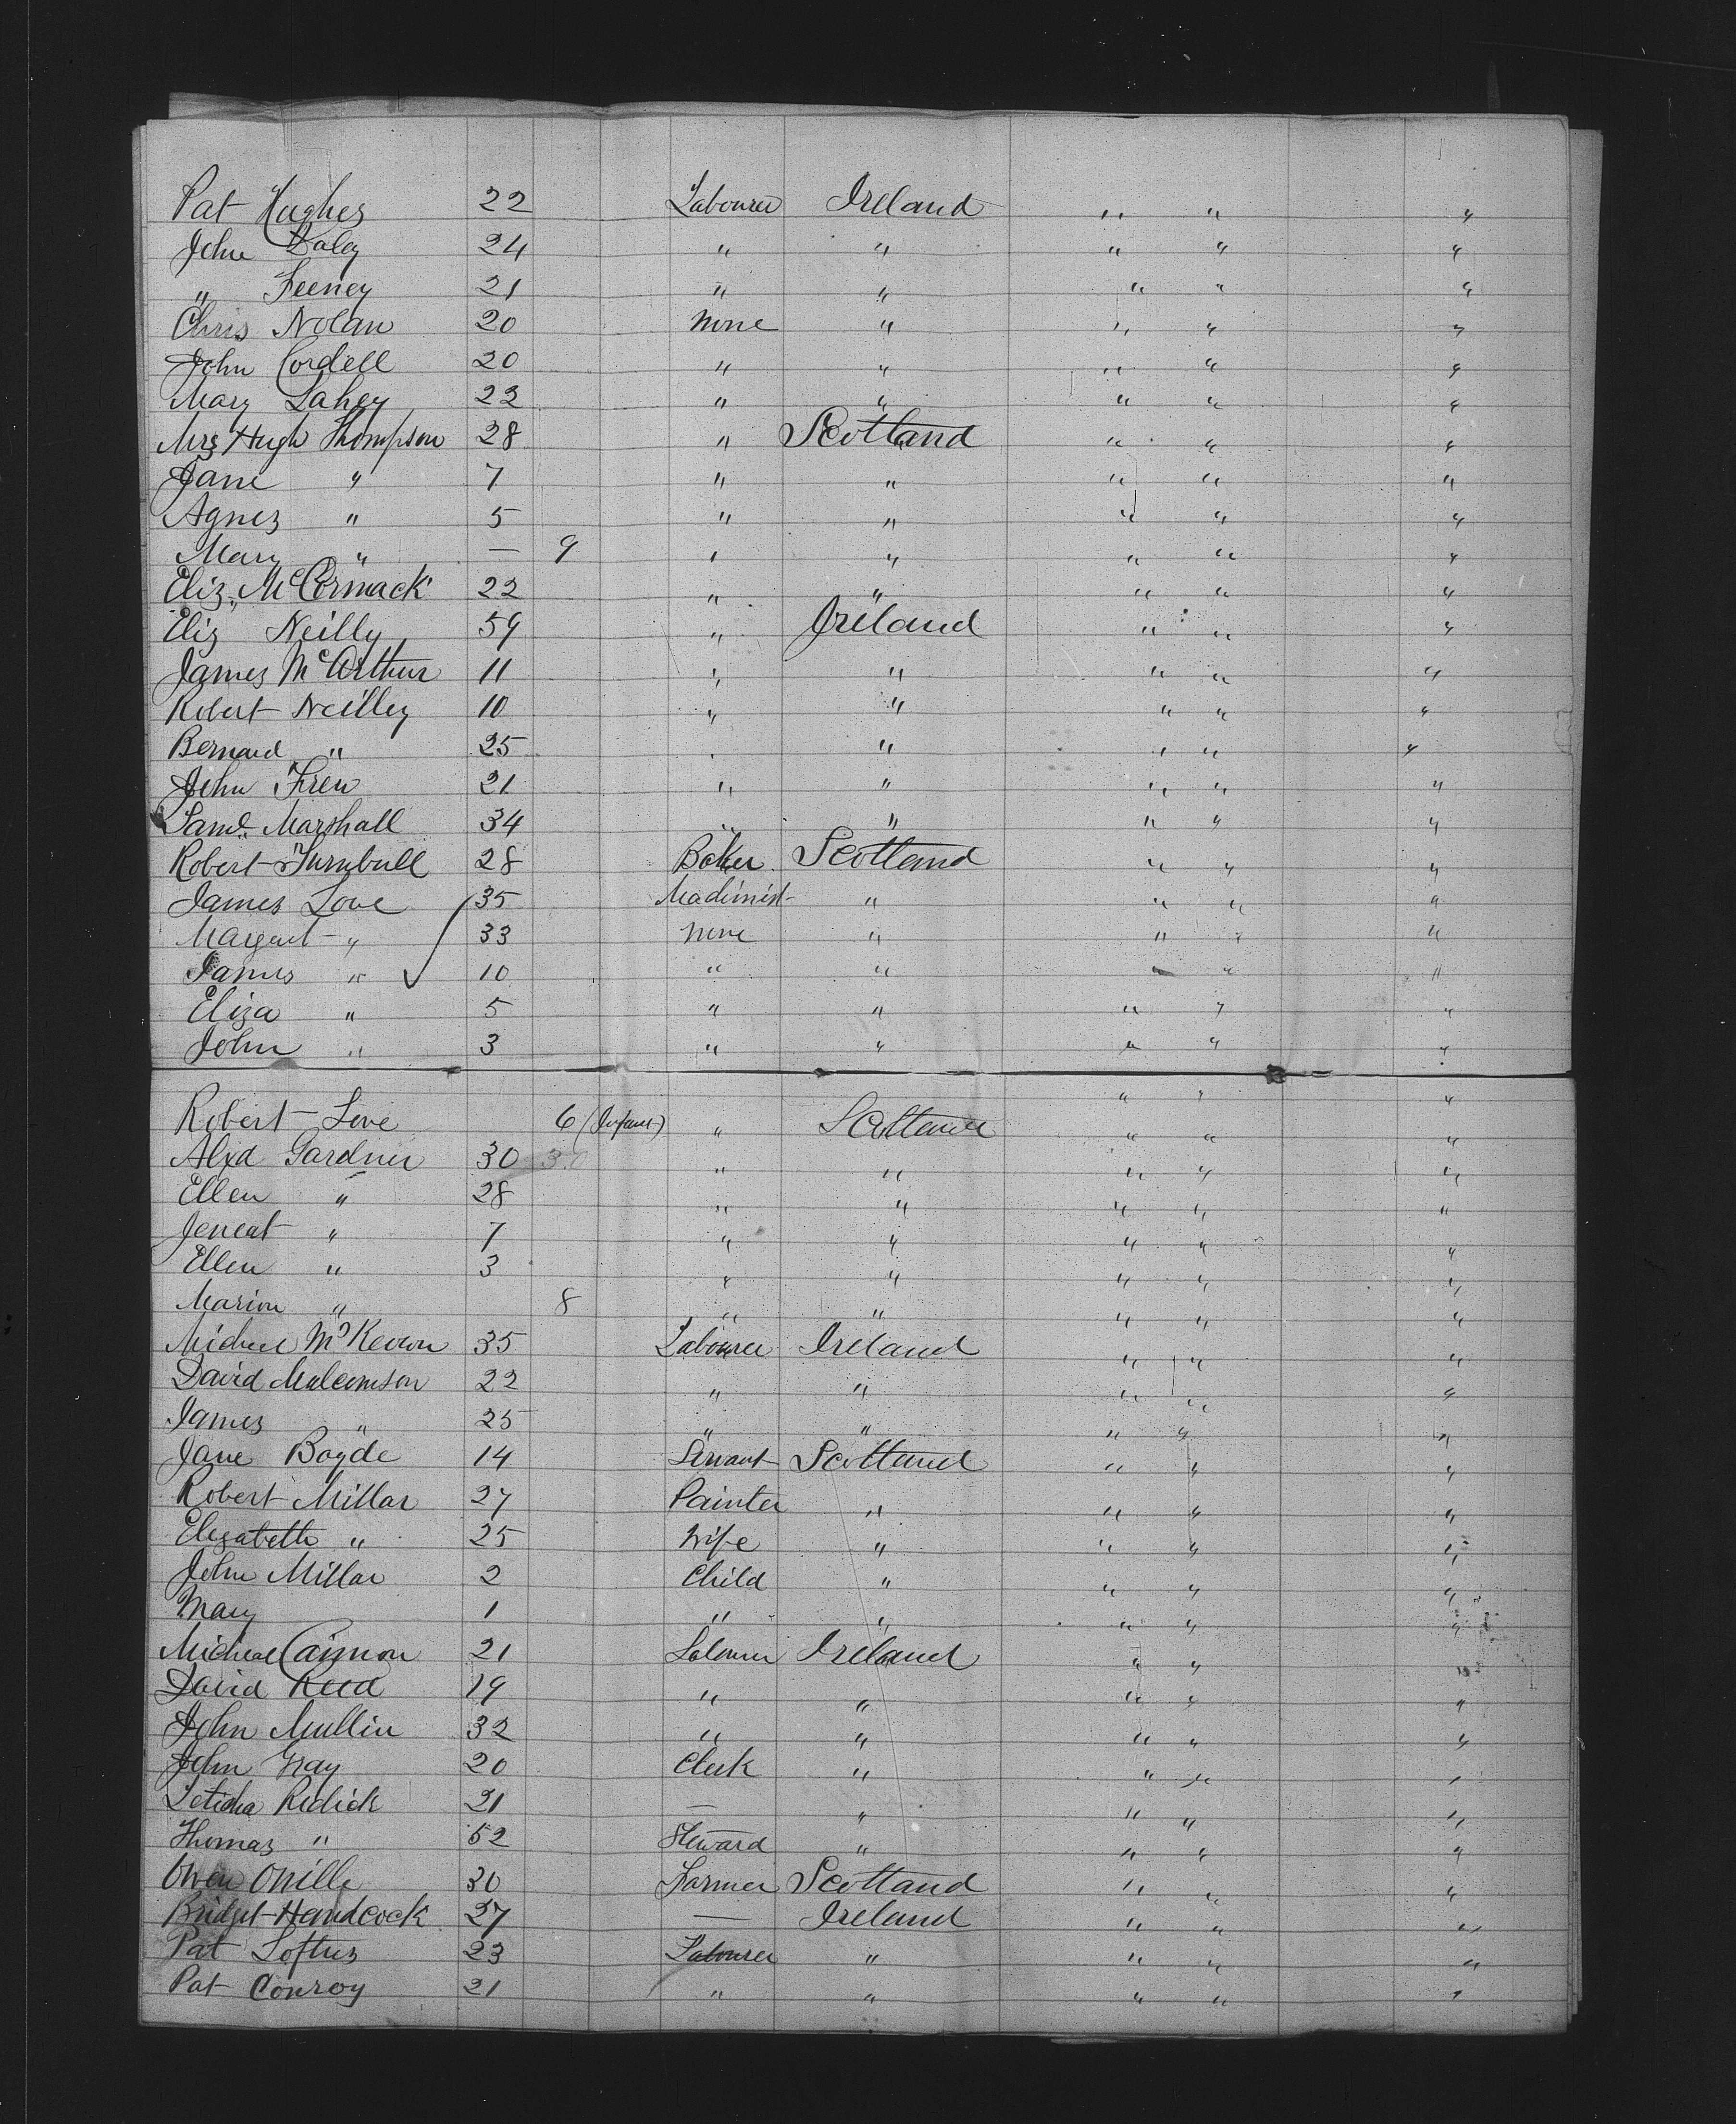 Pat Hughes 22 Labourer Ireland " " "
John Daley 24 " " " " "
" Feeney 21 " " " " "
Chris Nolan 20 None " " " "
John Cordell 20 " " " " "
Mary Lahey 22 " " " " "
Mrs Hugh Thompson 28 " Scotland " " "
Jane " 7 " " " " "
Agnes " 5 " " " " "
Mary " — 9 " " " " "
Eliz. McCormack 22 " " " " "
Eliz Neilly 59 " Ireland " " "
James McArthur 11 " " " " "
Robert Neilley 10 " " " " "
Bernard " 25 " " " " "
John Frew 21 " " " " "
Saml. Marshall 34 " " " " "
Robert Turnbull 28 Baker Scotland " " "
James Love 35 Machinist " " " "
Margaret " 33 None " " " "
James " 10 " " " " "
Eliza " 5 " " " " "
John " 3 " " " " "
" " "
Robert Love 6 (Infant) " Scotland " " "
Alxd Gardner 30 30 " " " " "
Ellen " 28 " " " " "
Jeneat " 7 " " " " "
Ellen " 3 " " " " "
Marion " 8 " " " " "
Micheal McKeown 35 Labourer Ireland " " "
David Malcomson 22 " " " " "
James " 25 " " " " "
Jane Boyde 14 Servant Scotland " " "
Robert Millar 27 Painter " " " "
Elizabeth " 25 Wife " " " "
John Millar 2 Child " " " "
Mary 1 " " " " "
Micheal Cannon 21 Labourer Ireland " " "
David Reed 19 " " " " "
John Mullin 32 " " " " "
John Gray 20 Clerk " " " "
Letidia Redick 21 — " " " "
Thomas " 52 Steward " " " "
Owen Oneille 30 Farmer Scotland " " "
Bridget Handcock 27 — Ireland " " "
Pat Loftus 23 Labourer " " " "
Pat Conroy 21 " " " " "